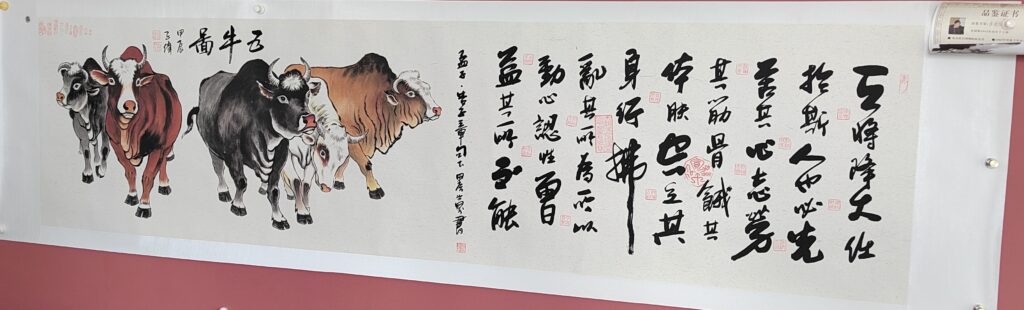 天將降大任
於斯人也必先
苦其心志勞
其筋骨餓其
体肤空乏其
身行拂
亂其所為所以
動心認性曾
益其所不能
孟子·告子章句下甲辰
五牛圖
甲辰
品鉴证书